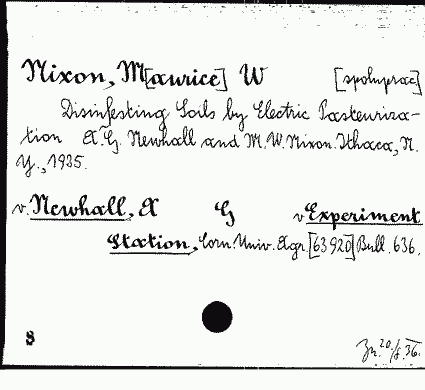 Nixon, M[aurice] W [spółprac]
Disinfesting Soils by Electric Pasteuriza-
tion A. G. Newhall and M. W. Nixon. Ithaca, N.
Y., 1935.
v. Newhall, A G v Experiment
Station, Corn. Univ. Agr. [63920] Bull. 636.
8